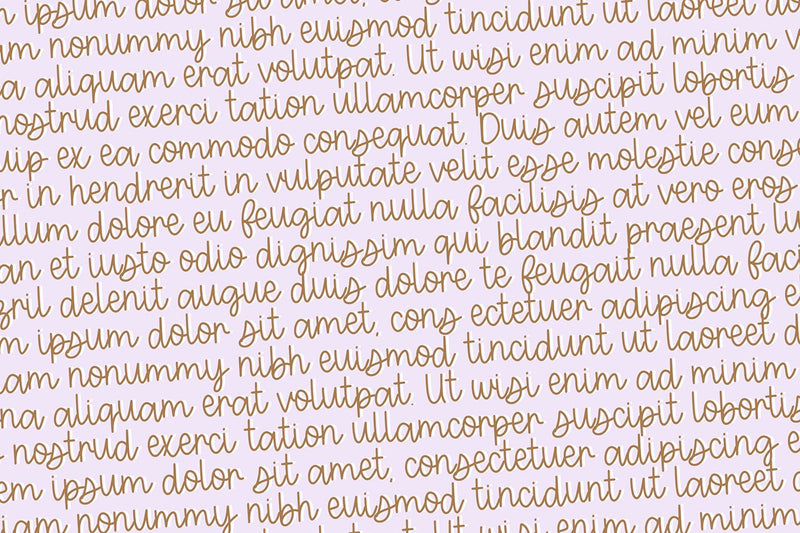 ipsum dolor sit amet,
am nonummy nibh euismod tincidunt ut laoreet do
a aliquam erat volutpat. Ut wisi enim ad minim v
nostrud exerci tation ullamcorper suscipit lobortis
uip ex ea commodo consequat. Duis autem vel eum
r in hendrerit in vulputate velit esse molestie conse
illum dolore eu feugiat nulla facilisis at vero eros
an et iusto odio dignissim qui blandit praesent lu
zril delenit augue duis dolore te feugait nulla faci
m ipsum dolor sit amet, cons ectetuer adipiscing e
iam nonummy nibh euismod tincidunt ut laoreet d
na aliquam erat volutpat. Ut wisi enim ad minim
s nostrud exerci tation ullamcorper suscipit lobortis
em ipsum dolor sit amet, consectetuer adipiscing e
iam nonummy nibh euismod tincidunt ut laoreet d
volutpat. Ut wisi enim ad minim